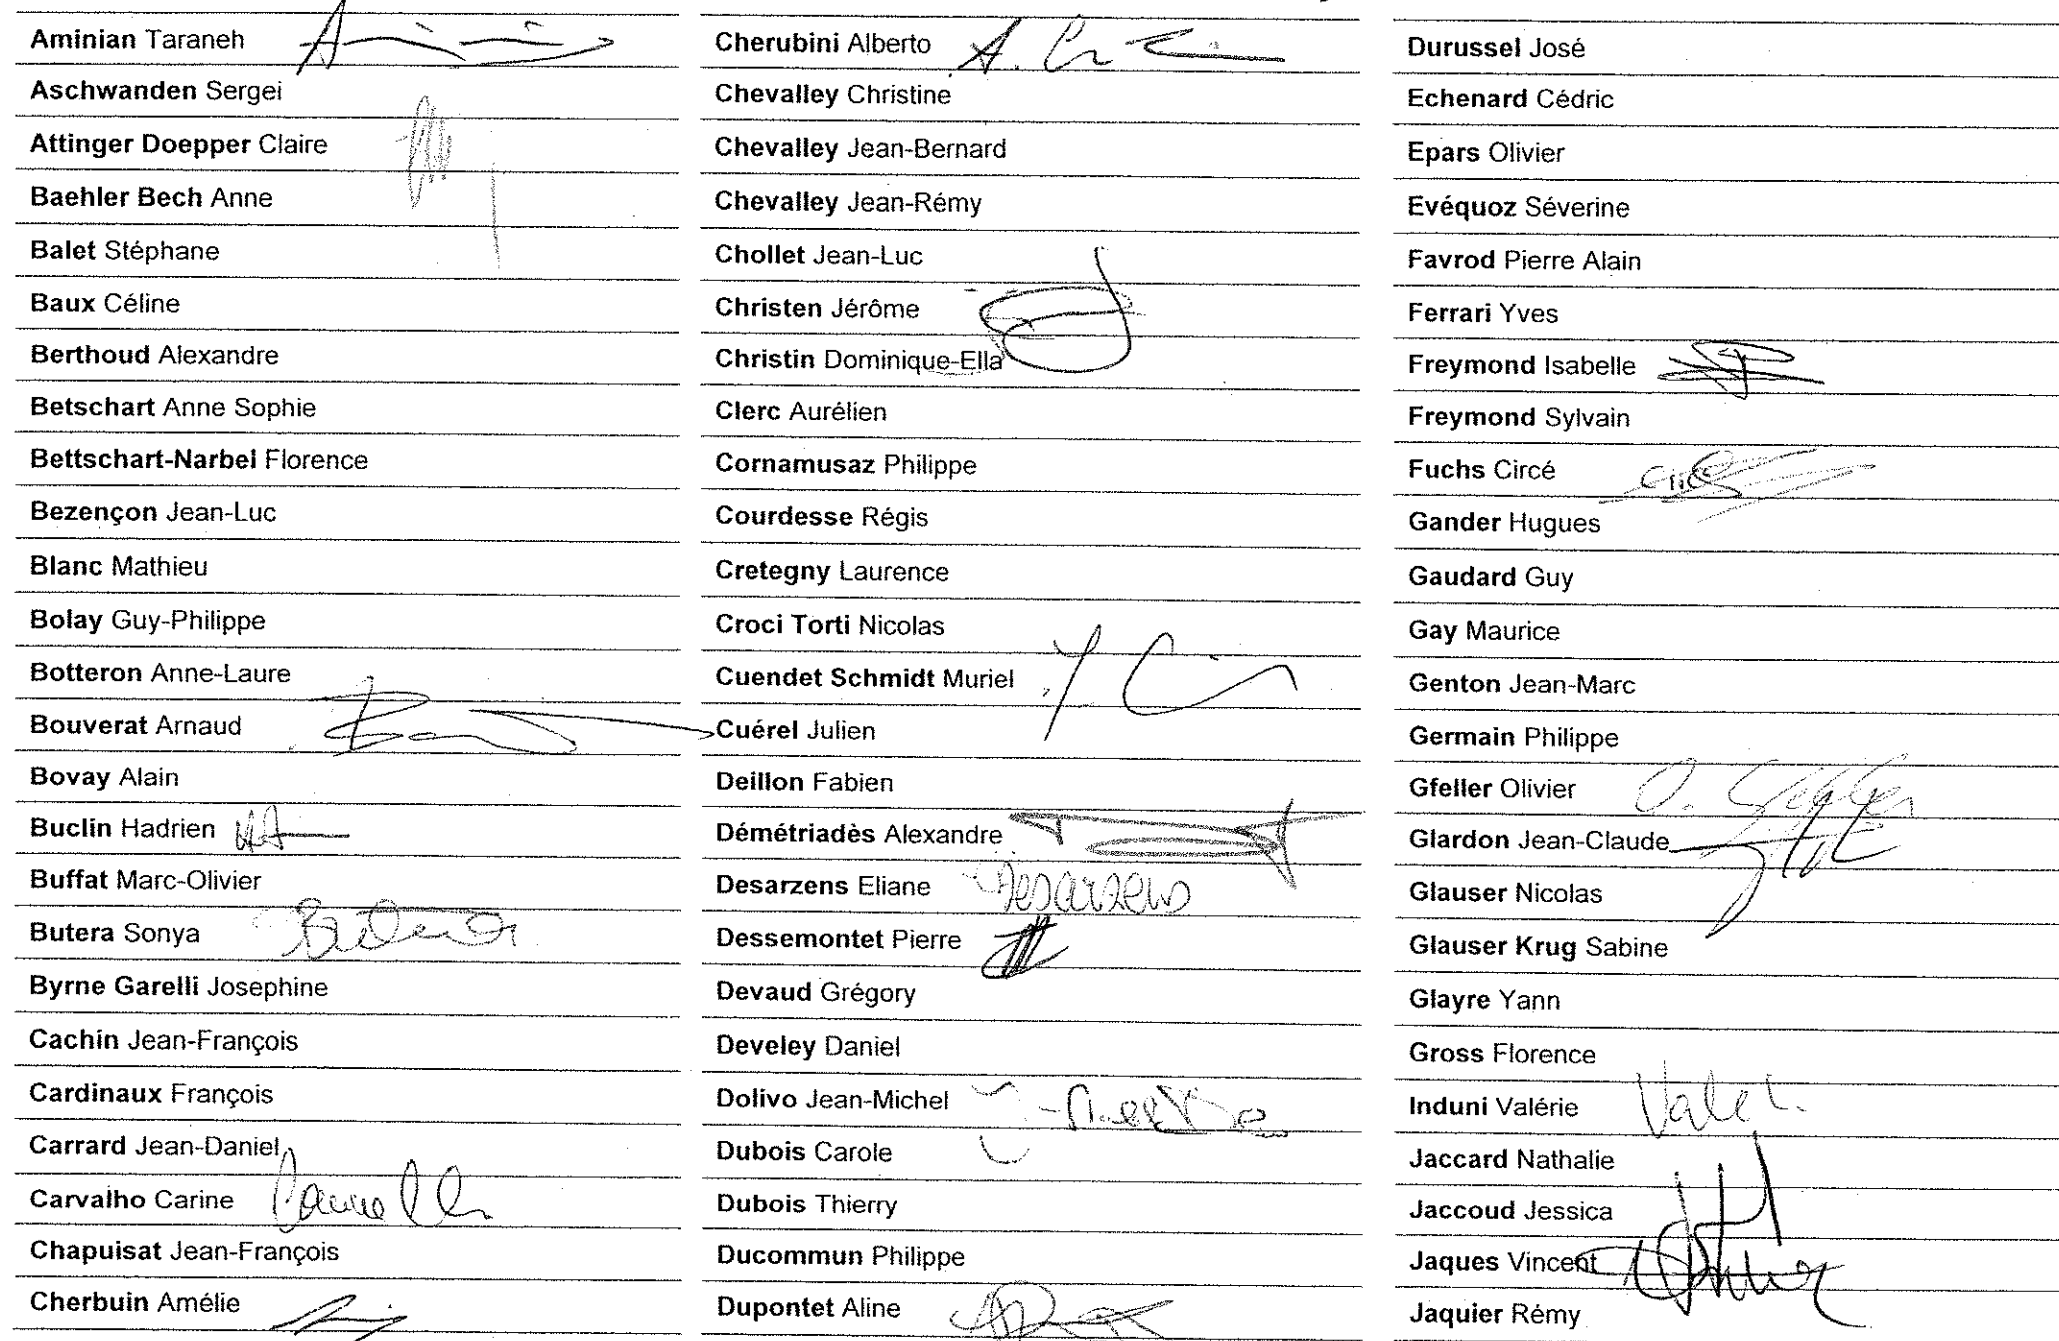 Aminian Taraneh
Aschwanden Sergei
Attinger Doepper Claire
Baehler Bech Anne
Balet Stéphane
Baux Céline
Berthoud Alexandre
Betschart Anne Sophie
Bettschart-Narbel Florence
Bezençon Jean-Luc
Blanc Mathieu
Bolay Guy-Philippe
Botteron Anne-Laure
Bouverat Arnaud
Bovay Alain
Buclin Hadrien
Buffat Marc-Olivier
Butera Sonya Butera
Byrne Garelli Josephine
Cachin Jean-François
Cardinaux François
Carrard Jean-Daniel
Carvalho Carine
Chapuisat Jean-François
Cherbuin Amélie
Cherubini Alberto
Chevalley Christine
Chevalley Jean-Bernard
Chevalley Jean-Rémy
Chollet Jean-Luc
Christen Jérôme
Christin Dominique-Ella
Clerc Aurélien
Cornamusaz Philippe
Courdesse Régis
Cretegny Laurence
Croci Torti Nicolas
Cuendet Schmidt Muriel
Cuérel Julien
Deillon Fabien
Démétriadès Alexandre
Desarzens Eliane Desarzens
Dessemontet Pierre
Devaud Grégory
Develey Daniel
Dolivo Jean-Michel
Dubois Carole
Dubois Thierry
Ducommun Philippe
Dupontet Aline
Durussel José
Echenard Cédric
Epars Olivier
Evéquoz Séverine
Favrod Pierre Alain
Ferrari Yves
Freymond Isabelle
Freymond Sylvain
Fuchs Circé
Gander Hugues
Gaudard Guy
Gay Maurice
Genton Jean-Marc
Germain Philippe
Gfeller Olivier O. Gfeller
Glardon Jean-Claude
Glauser Nicolas
Glauser Krug Sabine
Glayre Yann
Gross Florence
Induni Valérie
Jaccard Nathalie
Jaccoud Jessica
Jaques Vincent
Jaquier Rémy